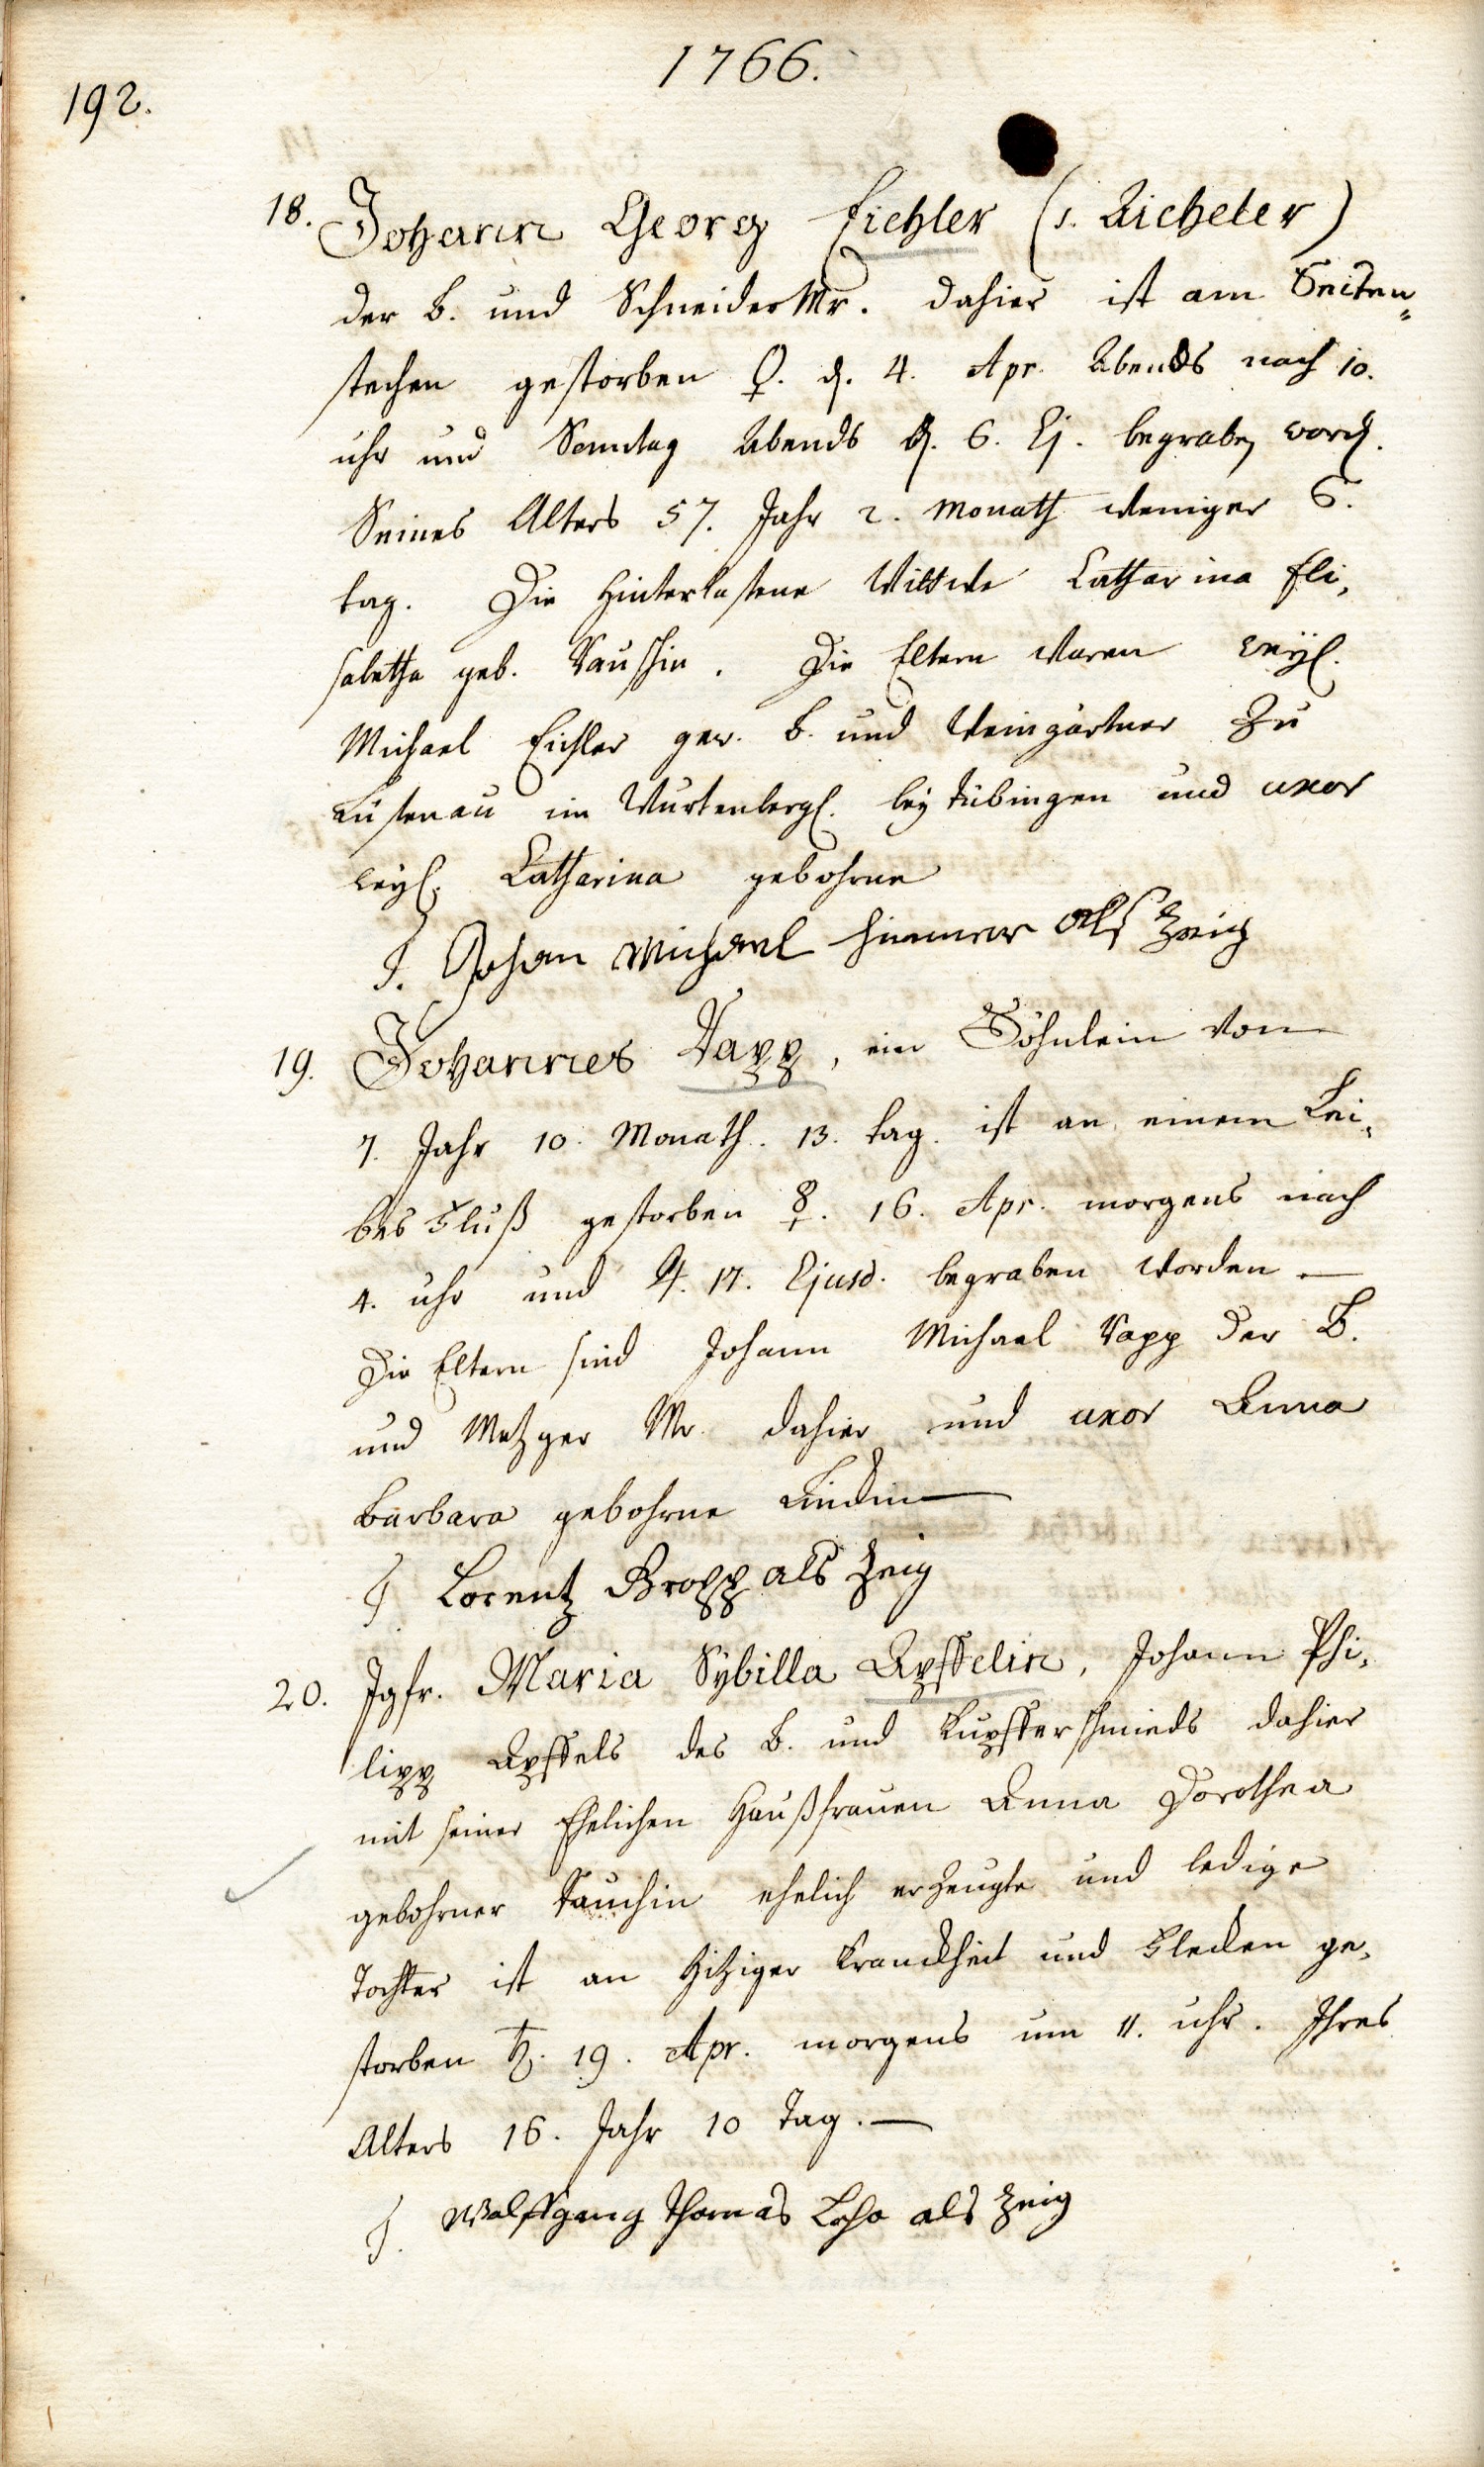 1766.
192.
18. Johann Georg Eichler (s. Aicheler)
der B. und Schneider Mr. dahier ist am Seiten„
stechen gestorben ♀. d. 4. Apr. Abends nach 10.
uhr und Sonntag Abends d. 6. Ej. begraben word.
Seines Alters 57. Jahr 2. Monath weniger 6.
tag. Die hinterlasene Wittwe Catharina Eli„
sabetha geb. . Die Eltern waren weyl.
Michael Eichler gew. B. und Weingärtner zu
Lustenau im Wurtenbergl. bey Tübingen und uxor
weyl. Catharina gebohrne
J. Johan Michael als Zeig
19. Johannes Rapp, ein Söhnlein von
7. Jahr 10. Monath. 13. tag. ist an einem Lei„
bes Fluß gestorben ☿. 16. Apr. morgens nach
4. uhr und ♃. 17. Ejusd. begraben worden —
Die Eltern sind Johann Michael Rapp der B.
und Metzger Mr. dahier und uxor Anna
Barbara gebohrne Lindin —
J Lorentz Gropp als Zeig
20. Jgfr. Maria Sybilla Apffelin, Johann Phi„
lipp Apffels des B. und Kupfferschmieds dahier
mit seiner Ehelichen Haußfrauen Anna Dorothea
gebohrner Rauchin ehelich erzeugte und ledige
Tochter ist an hitziger Kranckheit und Flecken ge„
storben ♄. 19. Apr. morgens um 11. uhr. Ihres
Alters 16. Jahr 10 Tag. —
J. Wolffgang Thomas als Zeig